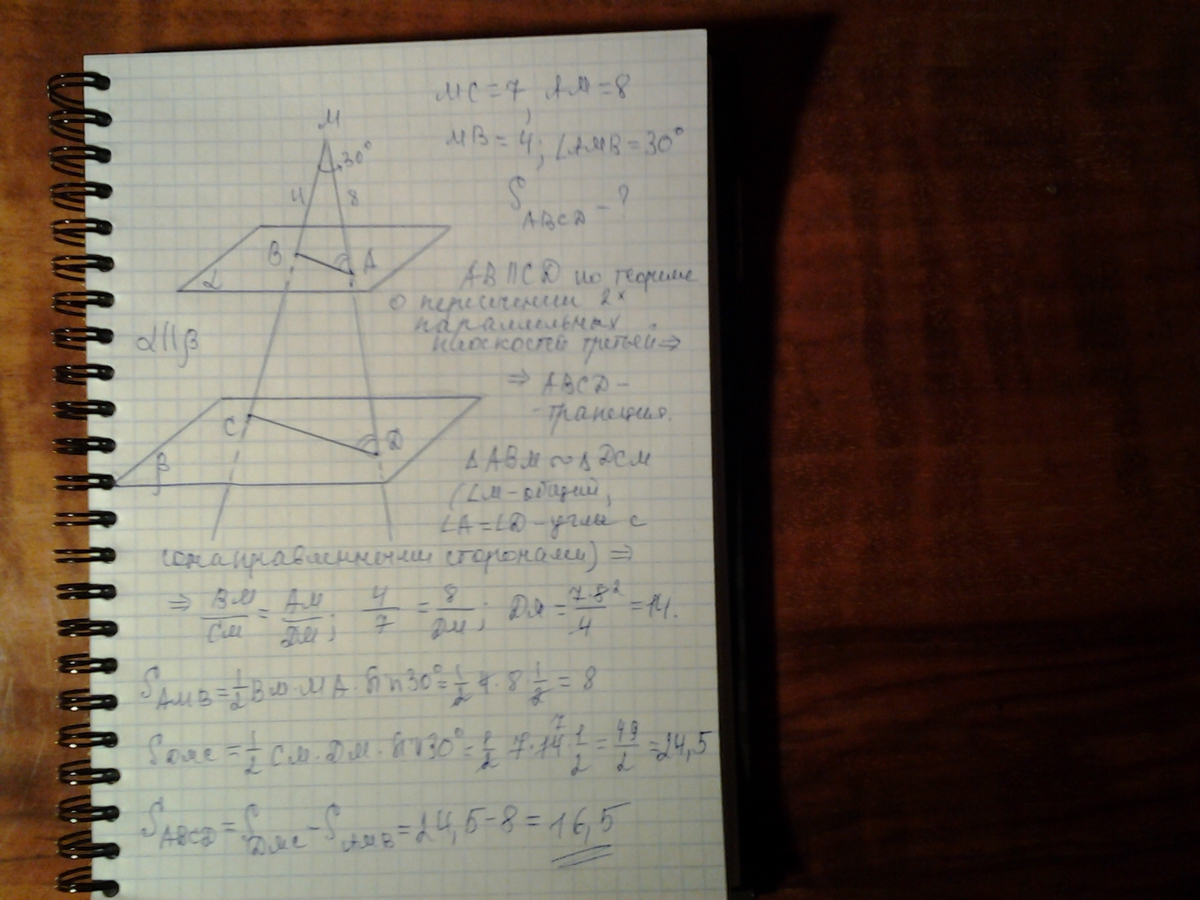 MC = 7, AM = 8
MB = 4; ∠AMB = 30°
S ABCD - ?
M
30°
4 8
B A
α
AB || CD по теореме
о пересечении 2х
параллельных
плоскостей третьей ⇒
α || β
⇒ ABCD -
- трапеция.
C D
β
Δ ABM ∾ Δ DCM
(∠M - общий,
∠A = ∠D - углы с
сонаправленными сторонами) ⇒
⇒ BM/CM = AM/DM; 4/7 = 8/DM; DM = 7·8²/4 = 14.
S AMB = 1/2 BM · MA · sin 30° = 1/2 4 · 8 · 1/2 = 8
S DMC = 1/2 CM · DM · sin 30° = 1/2 7 · 14⁷ · 1/2 = 49/2 = 24,5
S ABCD = S DMC - S AMB = 24,5 - 8 = 16,5